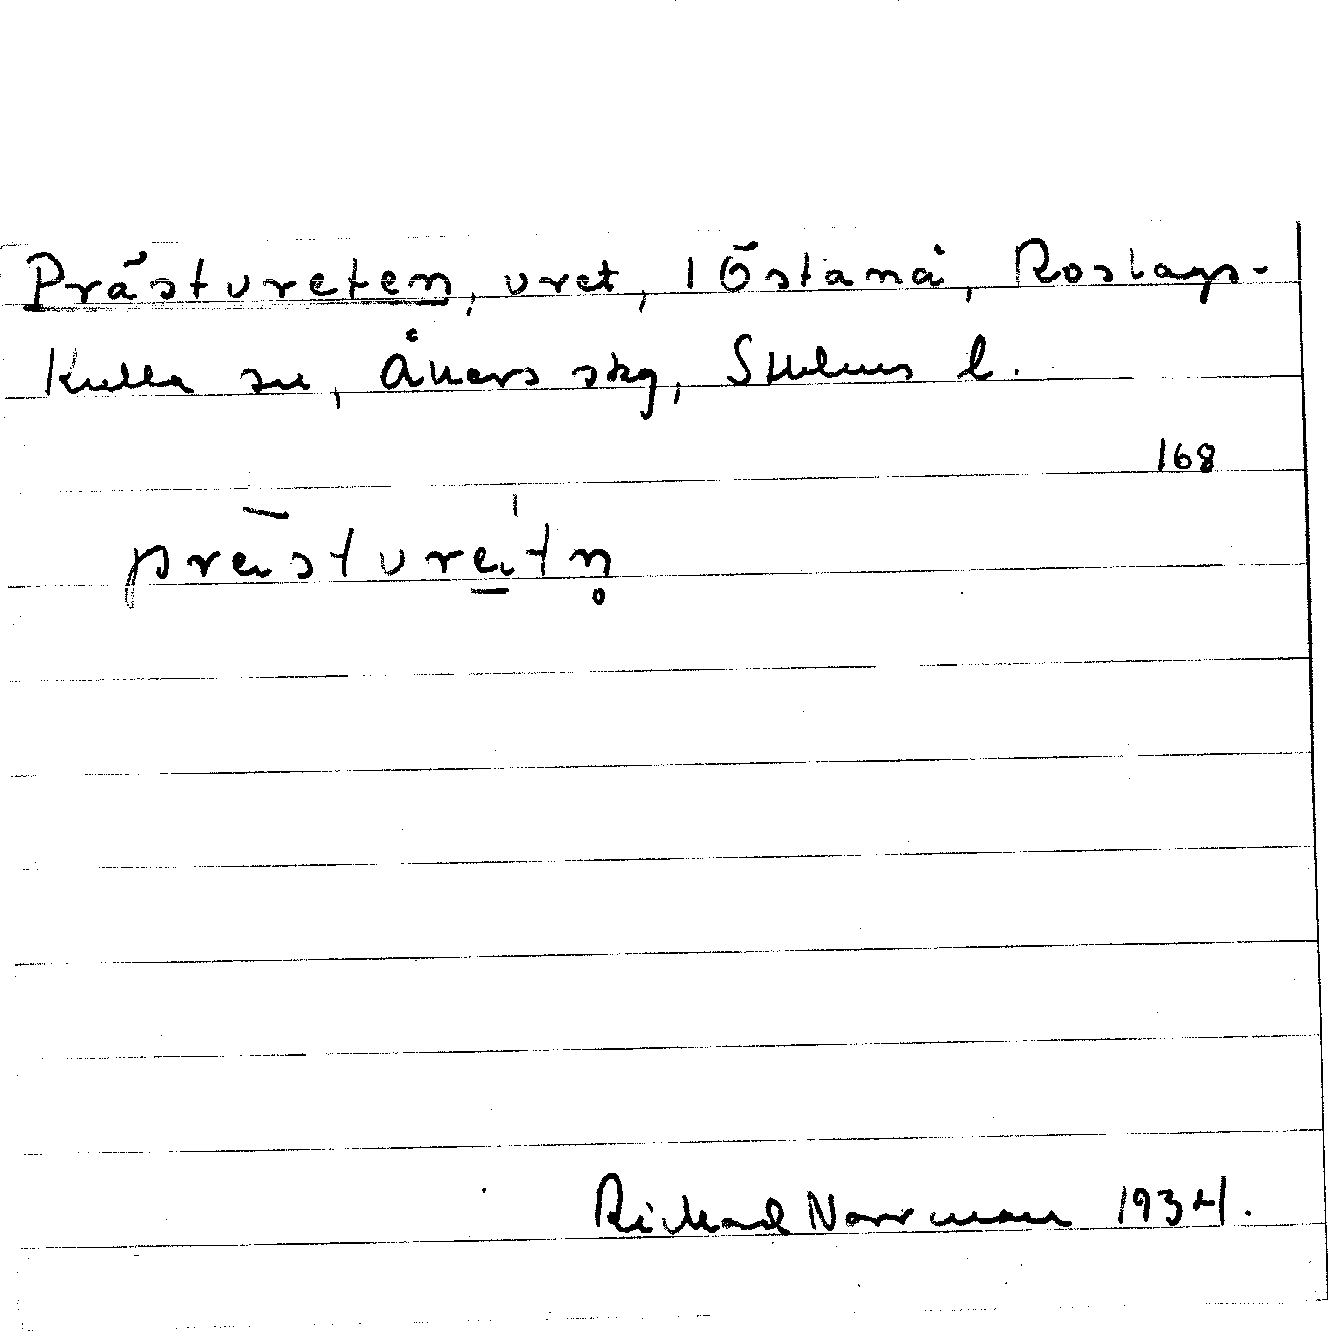 Prästvreten, vret, 1 Östanå, Roslags-
Kulla sn, Åkers skg, Sthlms l.
168
präst vrätn̥
Richard Norrman 1934.